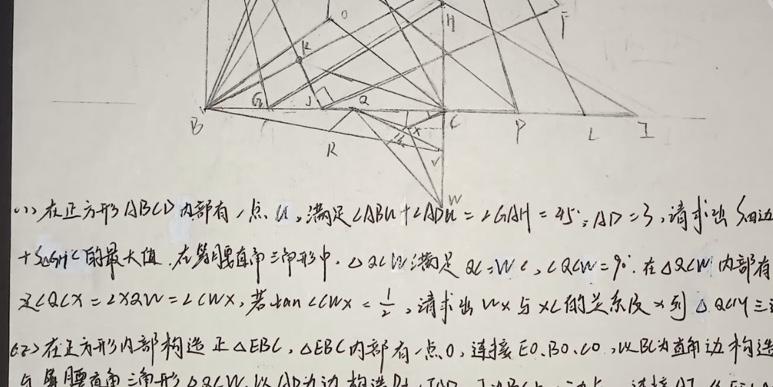 O H F
K
B G J Q C P L I
X
R V
W
(1)在正方形ABCD内部有一点U,满足∠ABU+∠ADU=∠GAH=45°,AD=3,请求出S四边
+S△GHC的最大值.在等腰直角三角形中,△QCW满足QC=WC,∠QCW=90°.在△QCW内部有
∠QCX=∠XQW=∠CWX,若tan∠CWX=1/2,请求出WX与XC的关系及X到△QCW三边
(2)在正方形内部构造正△EBC,△EBC内部有一点O,连接EO.BO.CO,以BC为直角边构造
等腰直角三角形△QCW,以AD为边构造